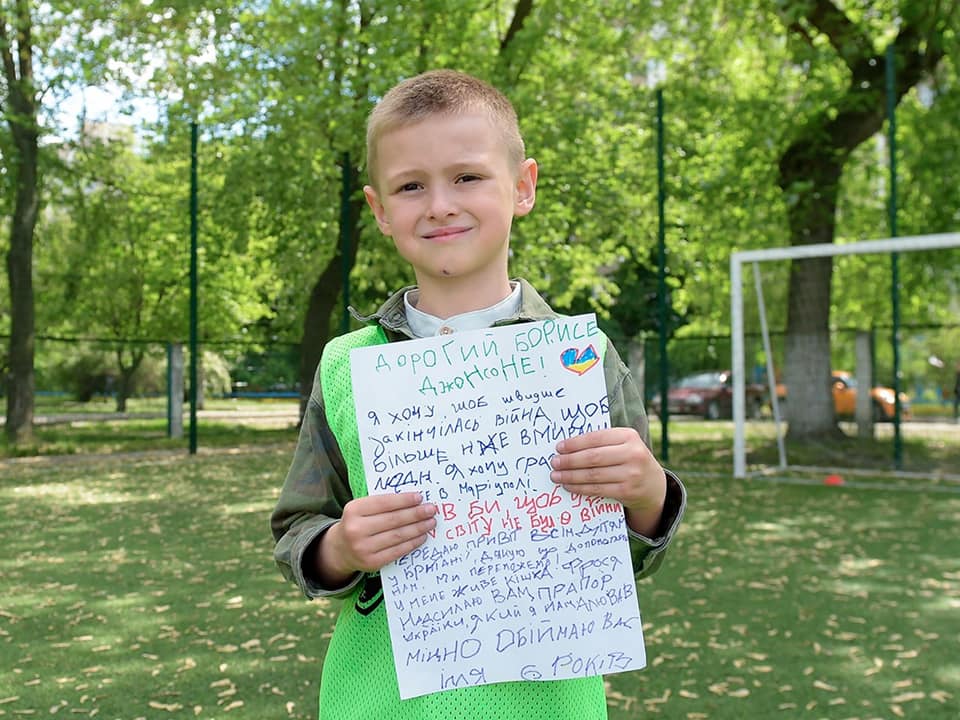 ДОРОГИЙ БОРИСЕ
ДЖОНСОНЕ!
Я ХОЧУ, ЩОБ ШВИДШЕ
ЗАКІНЧІЛАСЬ ВІЙНА, ЩОБ
БІЛЬШЕ НЕ ВМИРАЛИ
ЛЮДИ. Я ХОЧУ
В МАРІУПОЛІ.
БИ, ЩОБ
СВІТУ НЕ БУЛО ВІЙНИ
ПЕРЕДАЮ ПРИВІТ ВСІМ ДІТЯМ
У БРИТАНІЇ, ДЯКУЮ ЩО ДОПОМАГАЄТЕ
НАМ. МИ ПЕРЕМОЖЕМ!
У МЕНЕ ЖИВЕ КІШКА ФРОСЯ
НАДСИЛАЮ ВАМ ПРАПОР
УКРАЇНИ, ЯКИЙ Я НАМАЛЮВАВ
МІЦНО ОБІЙМАЮ ВАС
ІЛЯ 6 РОКІВ